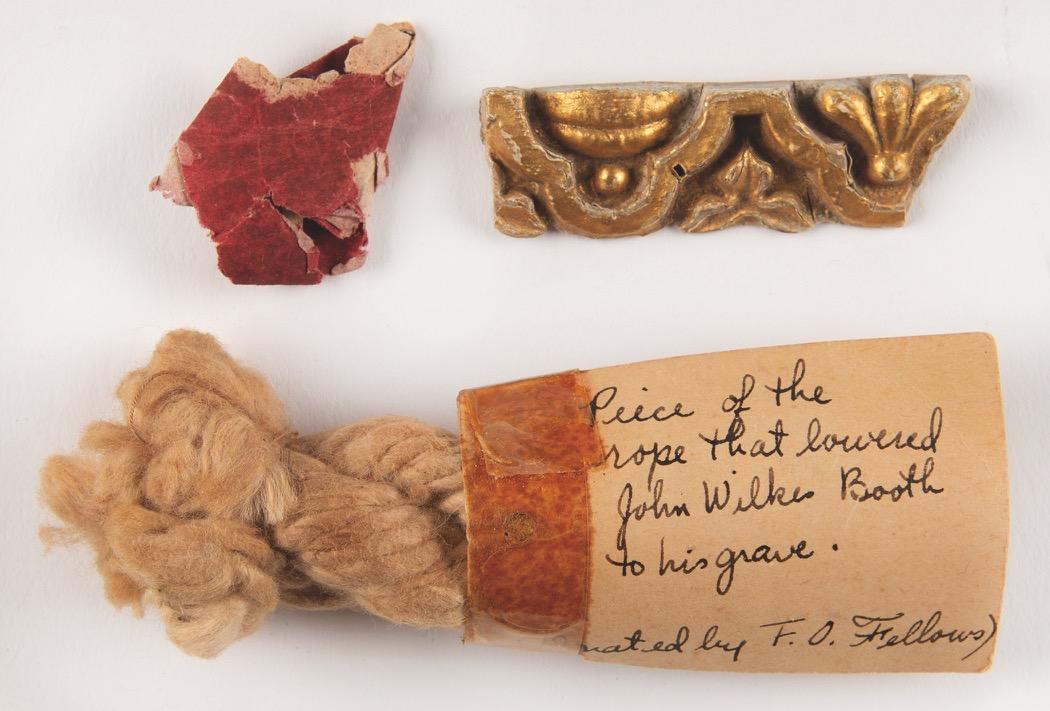 Piece of the
rope that lowered
John Wilkes Booth
to his grave.
nated by F. O. Fellows)